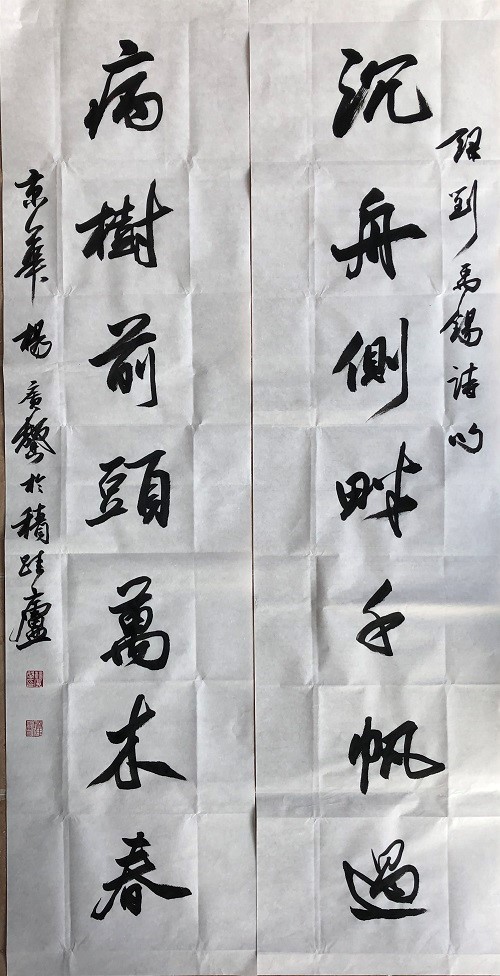 録劉禹錫詩句
沉舟側畔千帆過
病樹前頭萬木春
京華楊廣馨於積跬廬